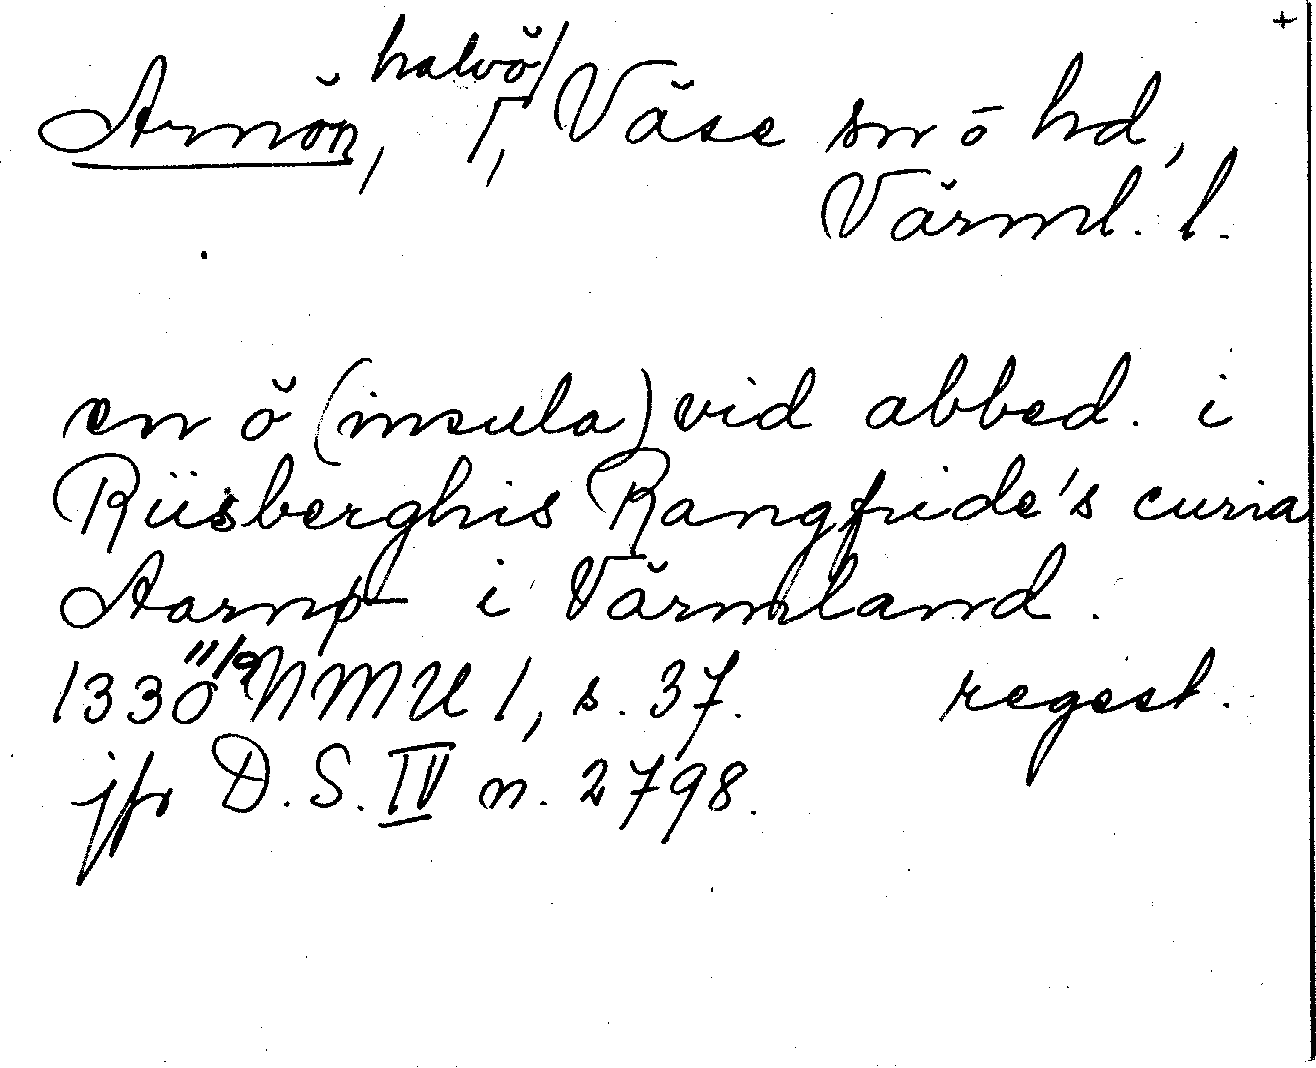 +
Arnön, halvö, Väse sn o hd,
Värml. l.
en ö (insula) vid abbed. i
Riisberghis Rangfride's curia
Aarnø i Värmland.
1330 11/9 NMU 1, s. 37. regest.
jfr D.S. IV n. 2798.